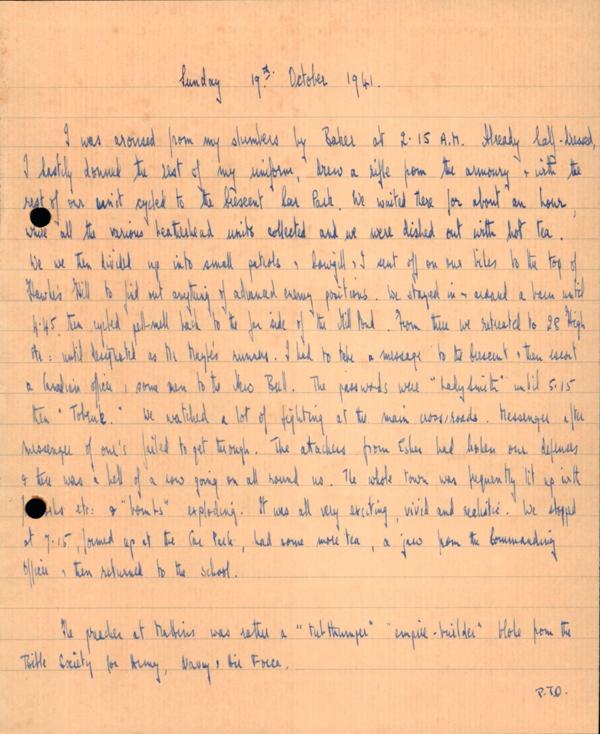 Sunday 19th October 1941.
I was aroused from my slumbers by Baker at 2.15 A.M. Already half-dressed,
I hastily donned the rest of my uniform, drew a rifle from the armoury & with the
rest of our unit cycled to the Crescent Car Park. We waited there for about an hour,
while all the various Leatherhead units collected and we were dished out with hot tea.
We then divided up into small patrols & I sent off on our bikes to the top of
Hawks's Hill to find out anything of advanced enemy positions. We stayed in & around a barn until
4.45 then cycled pell-mell back to the far side of the Mill Pond. From there we retreated to 28 High
Str: until designated as Mr runners. I had to take a message to the Crescent & then escort
a Canadian officer & some men to the New Bull. The passwords were "Ladysmith" until 5.15
then "Tobruk." We watched a lot of fighting at the main cross/roads. Messenger after
messenger of one's failed to get through. The attackers from Esher had broken our defences
& there was a hell of a row going on all round us. The whole town was frequently lit up with
etc: & "bombs" exploding. It was all very exciting, vivid and realistic. We stopped
at 7.15, formed up at the Car Park, had some more tea, a jaw from the Commanding
Officer & then returned to the school.
The preacher at Mattins was rather a "tub thumper" "empire-builder" bloke from the
Bible Society for Army, Navy & Air Force.
P.T.O.